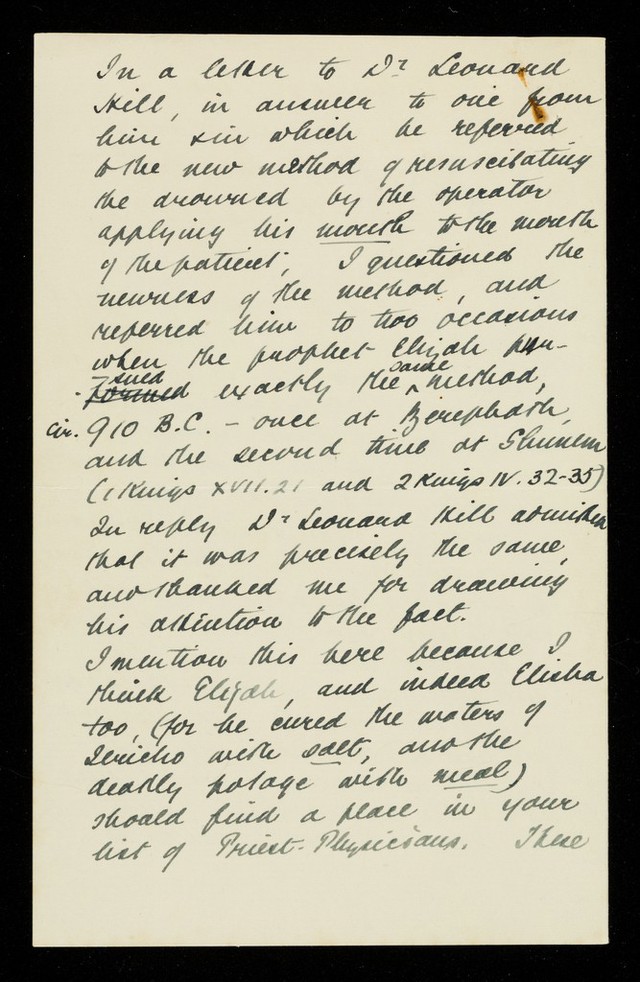 In a letter to Dr Leonard
Hill, in answer to one from
him & in which he referred
to the new method of resuscitating
the drowned by the operator
applying his mouth to the mouth
of the patient, I questioned the
newness of the method, and
referred him to two occasions
when the prophet Elijah pur-
-sued exactly the same method,
cir. 910 B.C. - once at Zerephath,
and the second time at Shunem
(1 Kings XVII.21 and 2 Kings IV. 32-35)
In reply Dr Leonard Hill admitted
that it was precisely the same,
and thanked me for drawing
his attention to the fact.
I mention this here because I
think Elijah, and indeed Elisha
too, (for he cured the waters of
Jericho with salt, and the
deadly potage with meal)
should find a place in your
list of Priest-Physicians. These